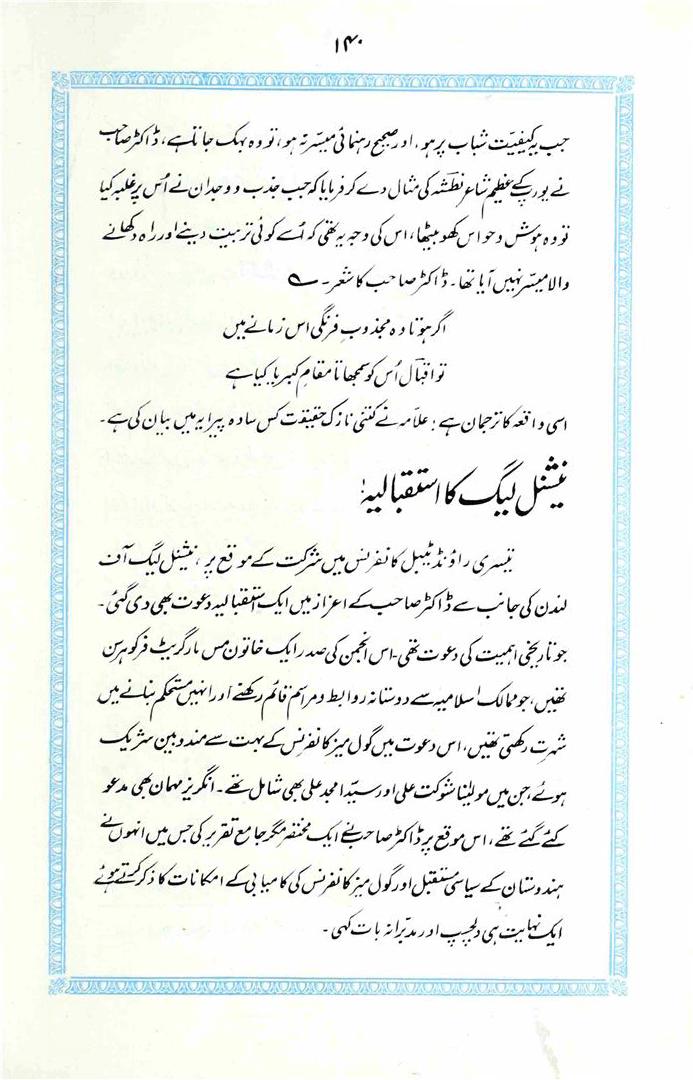 ۱۴۰
جب یہ کیفیّت شباب پر ہو، اور صحیح رہنمائی میسّر نہ ہو، تو وہ بہک جاتا ہے، ڈاکٹر صاحب
نے یورپ کے عظیم شاعر نطشہ کی مثال دے کر فرمایا کہ جب جذب و وجدان نے اُس پر غلبہ کیا
تو وہ ہوش و حواس کھو بیٹھا، اس کی وجہ یہ تھی کہ اُسے کوئی تربیت دینے اور راہ دکھانے
والا میسّر نہیں آیا تھا۔ ڈاکٹر صاحب کا شعر۔ ؎
اگر ہوتا وہ مجذوبِ فرنگی اس زمانے میں
تو اقبالؔ اُس کو سمجھاتا مقامِ کبریا کیا ہے
اسی واقعہ کا ترجمان ہے؛ علاّمہ نے کتنی نازک حقیقت کس سادہ پیرایہ میں بیان کی ہے۔
نیشنل لیگ کا استقبالیہ
تیسری راؤنڈ ٹیبل کانفرنس میں شرکت کے موقع پر، نیشنل لیگ آف
لندن کی جانب سے ڈاکٹر صاحب کے اعزاز میں ایک استقبالیہ دعوت بھی دی گئی۔
جو تاریخی اہمیت کی دعوت تھی۔ اس انجمن کی صدر ایک خاتون مس مارگریٹ فرکوہرسن
تھیں، جو ممالک اسلامیہ سے دوستانہ روابط و مراسم قائم رکھنے اور انہیں مستحکم بنانے میں
شہرت رکھتی تھیں، اس دعوت میں گول میز کانفرنس کے بہت سے مندوبین شریک
ہوئے، جن میں مولیٰنا شوکت علی اور سیّد امجد علی بھی شامل تھے۔ انگریز مہمان بھی مدعو
کئے گئے تھے، اس موقع پر ڈاکٹر صاحب نے ایک مختصر مگر جامع تقریر کی جس میں انہوں نے
ہندوستان کے سیاسی مستقبل اور گول میز کانفرنس کی کامیابی کے امکانات کا ذکر کرتے ہوئے
ایک نہایت ہی دلچسپ اور مدبّرانہ بات کہی۔